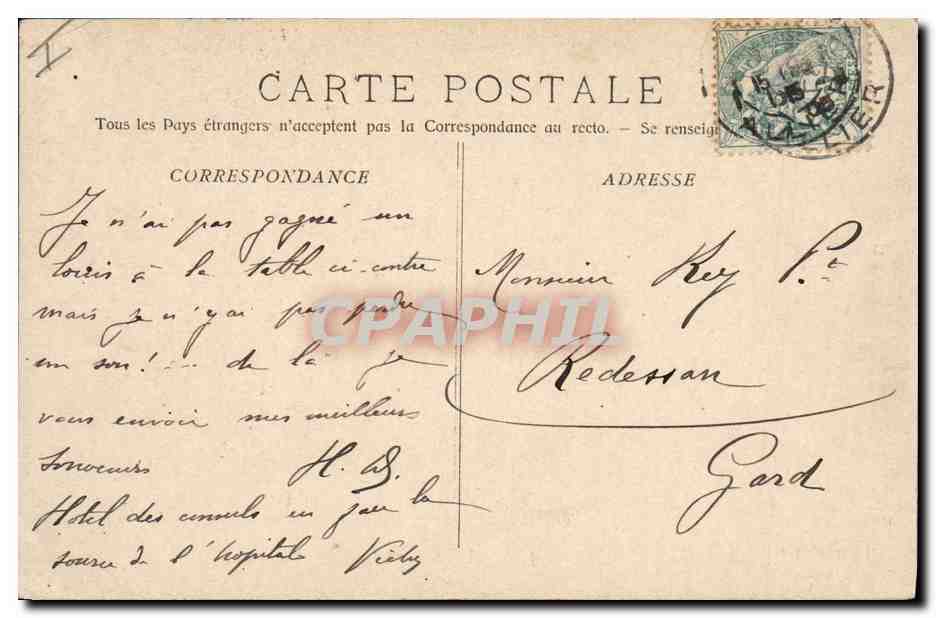 CARTE POSTALE
Tous les Pays étrangers n'acceptent pas la Correspondance au recto. — Se renseig
CORRESPONDANCE
Je n'ai pas gagné un
louis à la table ci-contre
mais je n'y ai pas perdu
un sou! ... de là je
vous envoie mes meilleurs
souvenirs H.
Hotel des consuls en face la
source de l'hopitale Vichy
ADRESSE
Monsieur Rey Pt
Redessan
Gard
ALLIER
CPAPHIL